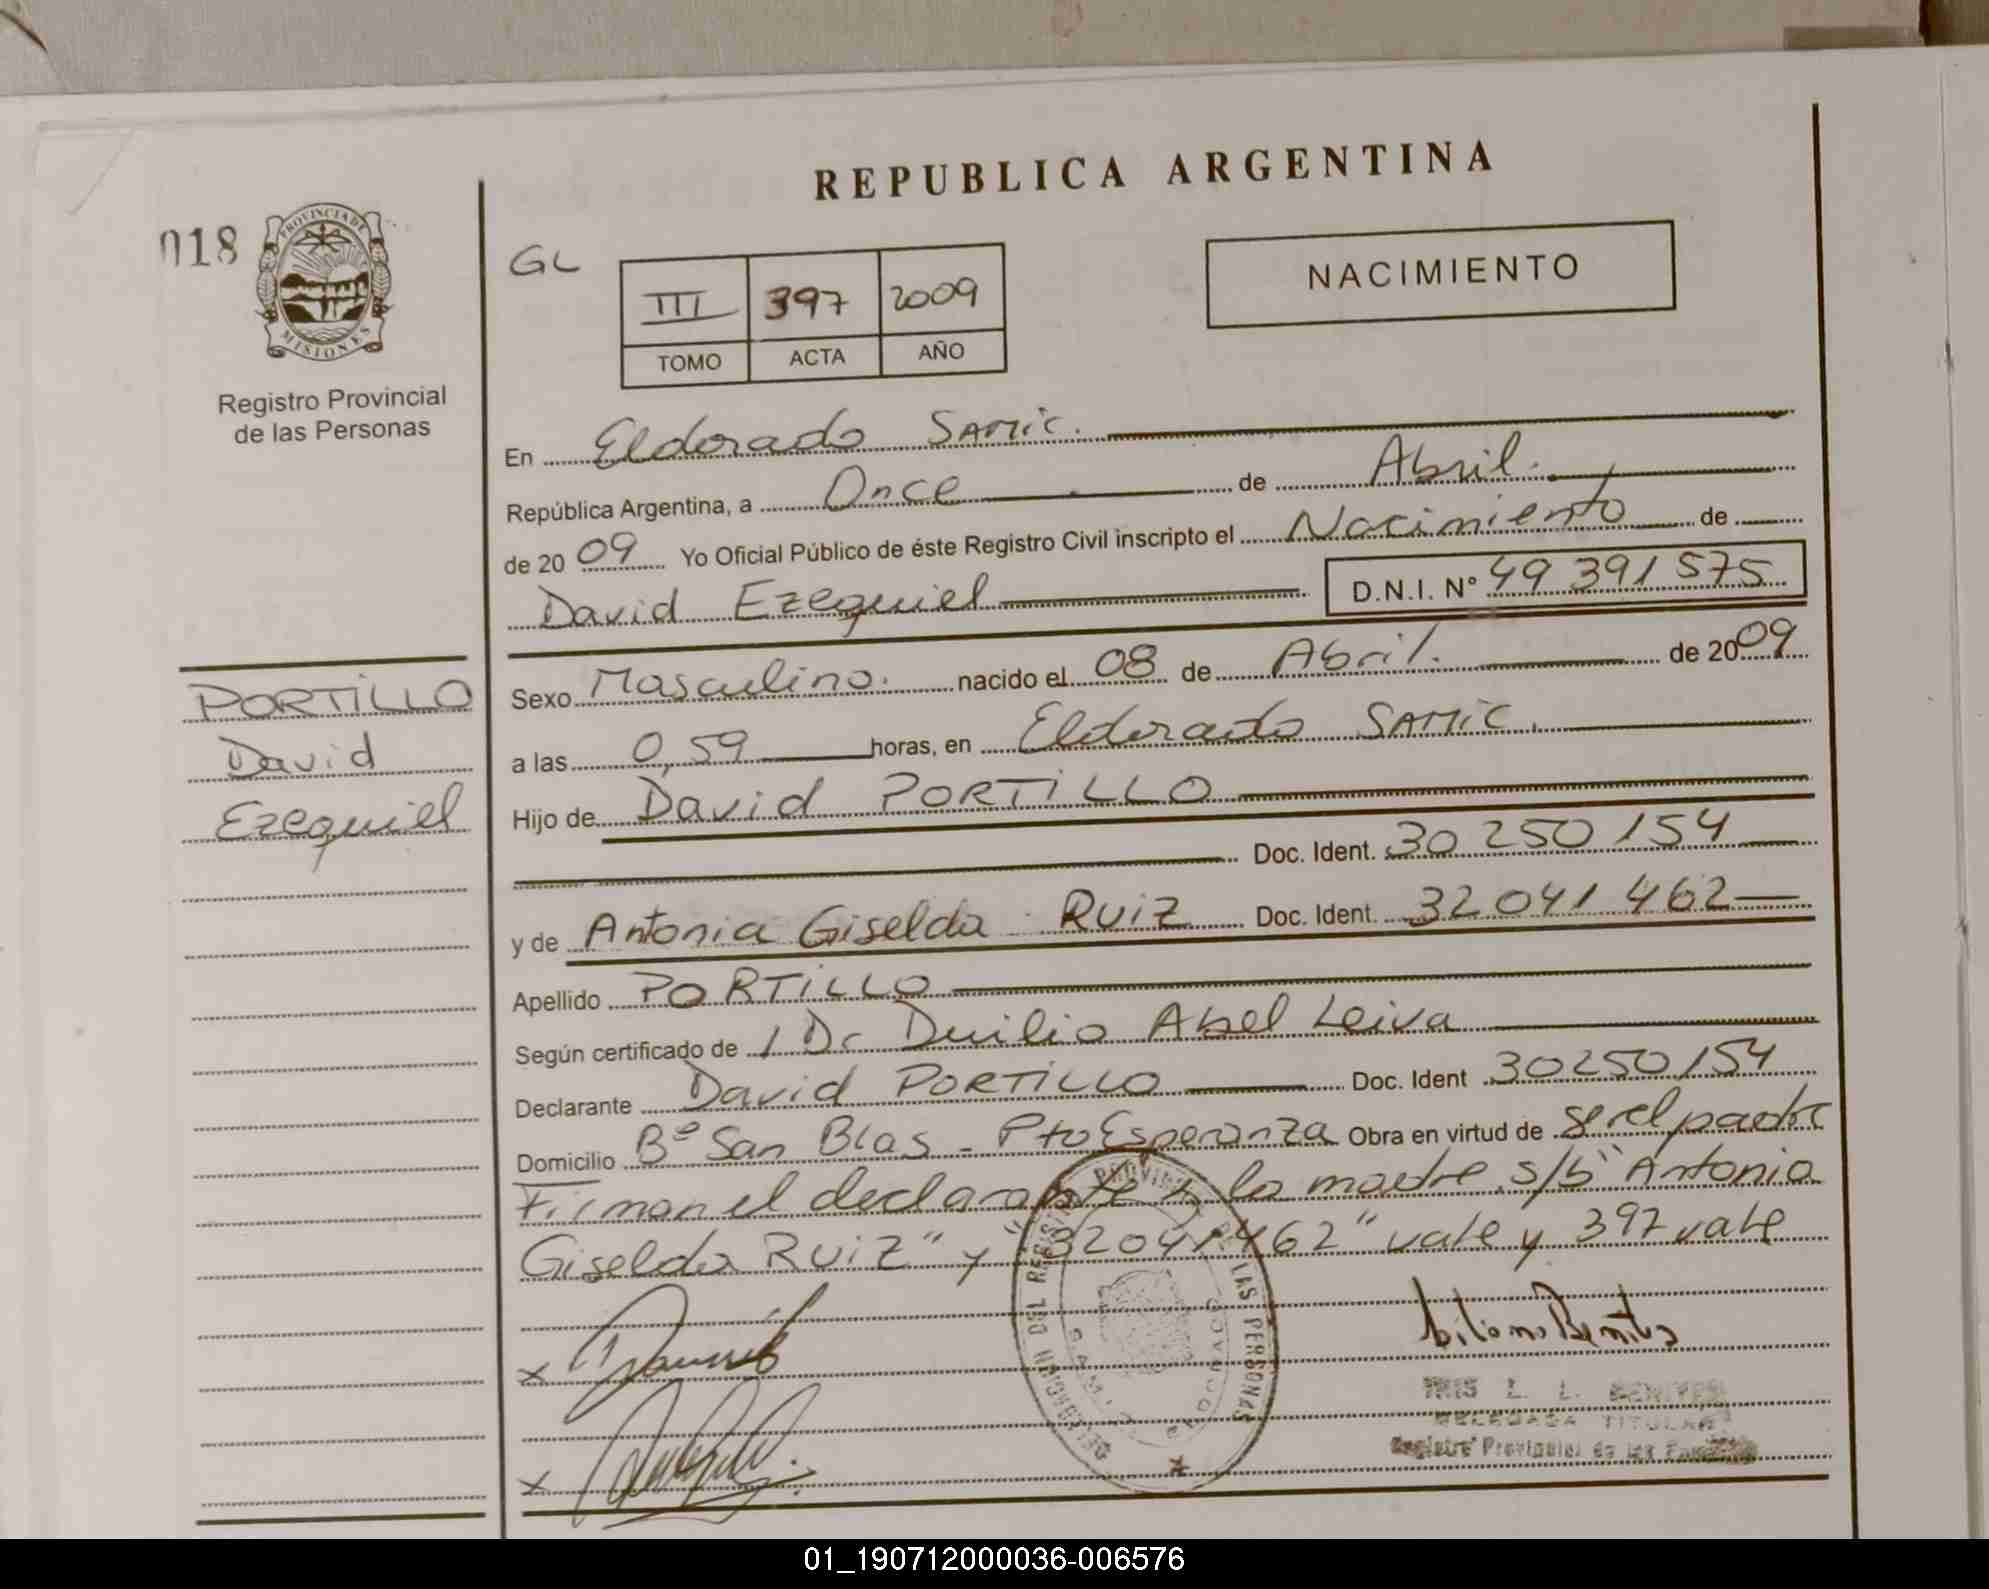 REPUBLICA ARGENTINA
018
PROVINCIA DE
MISIONES
Registro Provincial
de las Personas
GL
III 397 2009
TOMO ACTA AÑO
NACIMIENTO
En Eldorado SAMIC.
República Argentina, a Once de Abril.
de 2009 Yo Oficial Público de éste Registro Civil inscripto el Nacimiento de
David Ezequiel D.N.I. Nº 49 391 575
PORTILLO
David
Ezequiel
Sexo Masculino. nacido el 08 de Abril. de 2009
a las 0,59 horas, en Eldorado SAMIC.
Hijo de David PORTILLO
Doc. Ident. 30 250 154
y de Antonia Giselda RUIZ Doc. Ident. 32 041 462
Apellido PORTILLO
Según certificado de / Dr Duilio Abel Leiva
Declarante David PORTILLO Doc. Ident 30250154
Domicilio Bº San Blas - Pto Esperanza Obra en virtud de ser el padre
Firman el declarante y la madre s/b "Antonia
Giselda RUIZ" y "32041462" vale y 397 vale
DELEGACION DEL REGISTRO PROVINCIAL DE LAS PERSONAS
ELDORADO
IRIS L. L. BENITEZ
DELEGADA TITULAR
Registro Provincial de las Personas
01_190712000036-006576